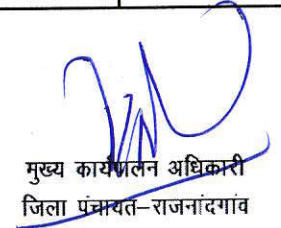 मुख्य कार्यपालन अधिकारी
जिला पंचायत–राजनांदगांव